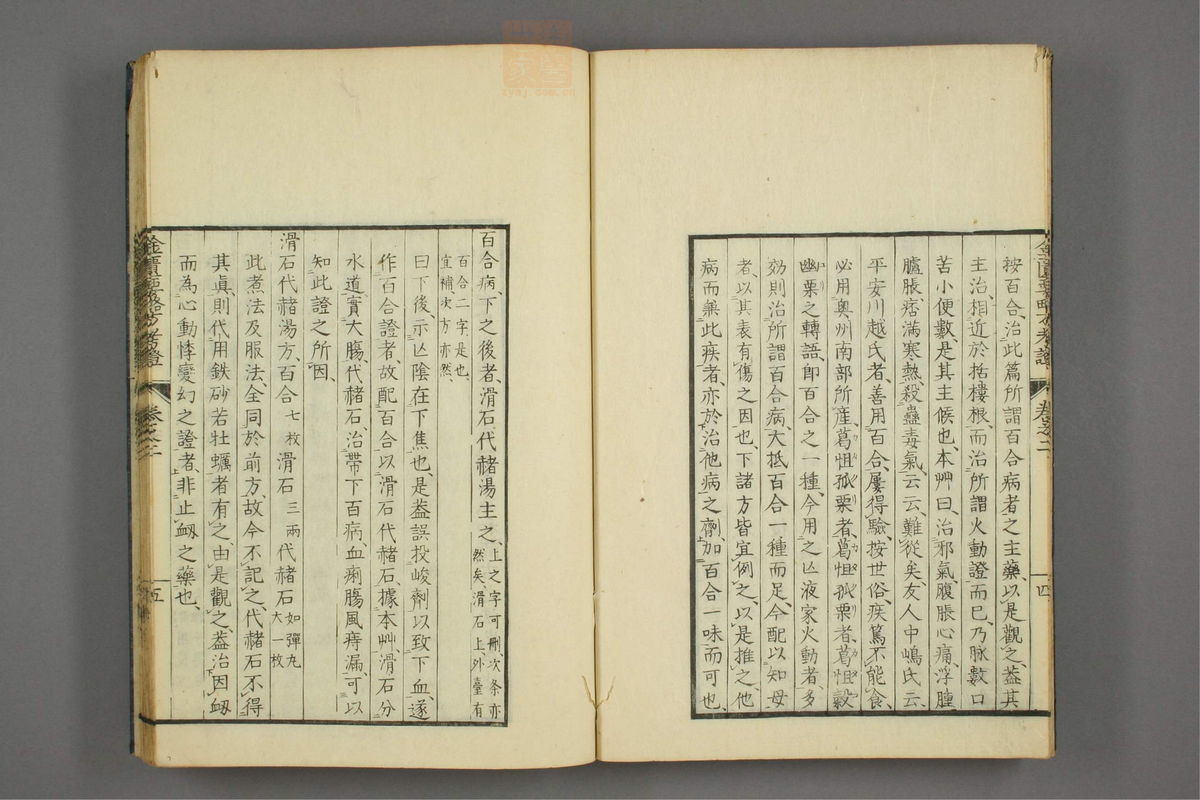 按百合、治此篇所謂百合病者之主藥、以是觀之、葢其
主治、相近於括樓根、而治所謂火動證而已、乃脉數口
苦小便數、是其主候也、本艸曰、治邪氣、腹脹心痛、浮腫
臚脹、痞滿寒熱、殺蟲毒氣、云云、難從矣、友人中嶋氏云、
平安川越氏者、善用百合、屢得驗、按世俗、疾篤不能食、
必用奧州南部所產葛怚孤栗者、葛怚孤栗者、葛怚穀
幽栗之轉語、卽百合之一種、今用之亾液家火動者、多
効、則治所謂百合病、大抵百合一種而足、今配以知母
者、以其表有傷之因也、下諸方皆宜例之、以是推之、他
病而兼此疾者、亦於治他病之劑、加百合一味而可也、
金匱要略方考證
卷之二
四
百合病、下之後者、滑石代赭湯主之、
上之字可刪、次条亦
然矣、滑石上、外臺有
百合二字是也、
宜補、次方亦然、
曰下後、示亾陰在下焦也、是葢誤投峻劑以致下血、遂
作百合證者、故配百合以滑石代赭石、據本艸、滑石分
水道、實大膓、代赭石、治帶下百病、血痢膓風痔漏、可以
知此證之所因、
滑石代赭湯方、百合七枚滑石三兩代赭石
如彈丸
大一枚
此煮法及服法、全同於前方、故今不記之、代赭石不得
其真、則代用鉄砂若牡蠣者有之、由是觀之、葢治因衂
而為心動悸變幻之證者、非止衂之藥也、
金匱要略方考證
卷之二
五
zyyj.com.cn